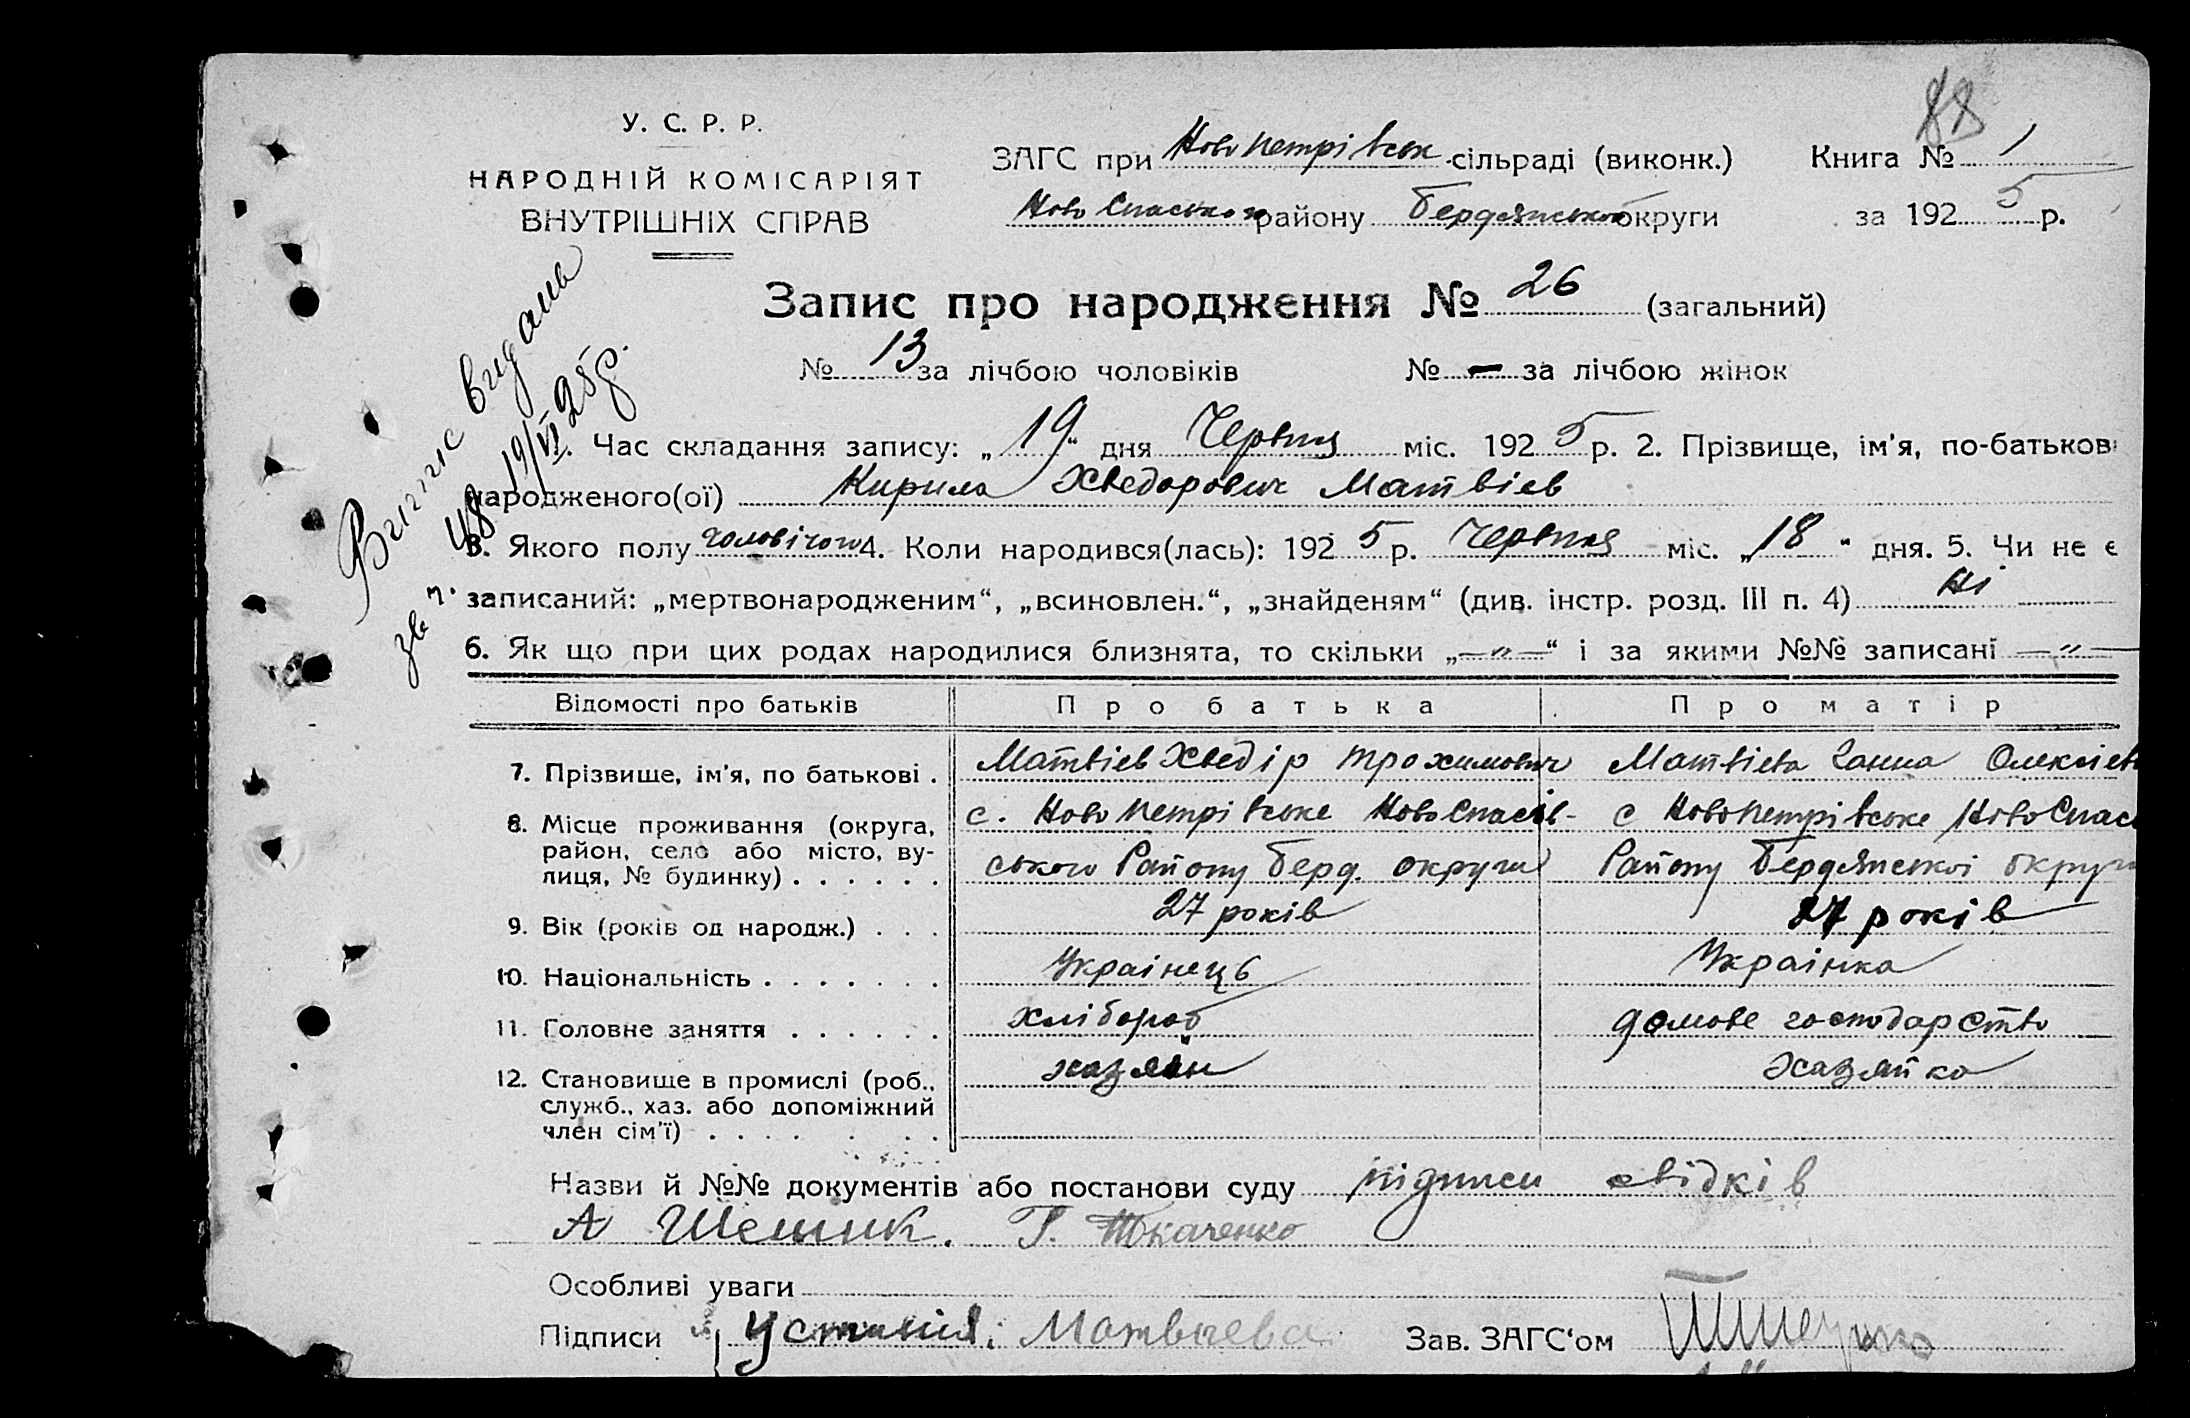 88
У. С. Р. Р.
НАРОДНІЙ КОМІСАРІЯТ
ВНУТРІШНІХ СПРАВ
ЗАГС при Ново Петрівськ. сільраді (виконк.) Книга № 1
Ново Спаського району Бердянської округи за 1925 р.
Запис про народження № 26 (загальний)
№ 13 за лічбою чоловіків № — за лічбою жінок
Випис видань
19/VI 25 р.
за ч. 48
Час складання запису: „19“ дня Червня міс. 1925 р. 2. Прізвище, ім'я, по-батькові
народженого(ої) Кирила Хведорович Матвієв
3. Якого полу чоловічого 4. Коли народився(лась): 1925 р. Червня міс. „18“ дня. 5. Чи не є
записаний: „мертвонародженим“, „всиновлен.“, „знайденям“ (див. інстр. розд. III п. 4) ні
6. Як що при цих родах народилися близнята, то скільки „—„—“ і за якими №№ записані —„—
Відомості про батьків Про батька Про матір
7. Прізвище, ім'я, по батькові . Матвієв Хведір Трохимович Матвієва Ганна Олексієв
8. Місце проживання (округа, район, село або місто, вулиця, № будинку) . . . . . .
с. Ново Петрівське Ново Спасів- с Ново Петрівське Ново Спас
ського Району Берд. округи Району Бердянської округи
9. Вік (років од народж.) . . . 27 років 27 років
10. Національність . . . . . . . Українець Українка
11. Головне заняття . . . . . . хлібороб домове господарство
12. Становище в промислі (роб., служб., хаз. або допоміжний член сім'ї) . . . . . . .
хазяїн хазяйка
Назви й №№ документів або постанови суду підписи свідків
А Шешик. Г. Ткаченко
Особливі уваги
Підписи Устиния. Матвыева Зав. ЗАГС'ом